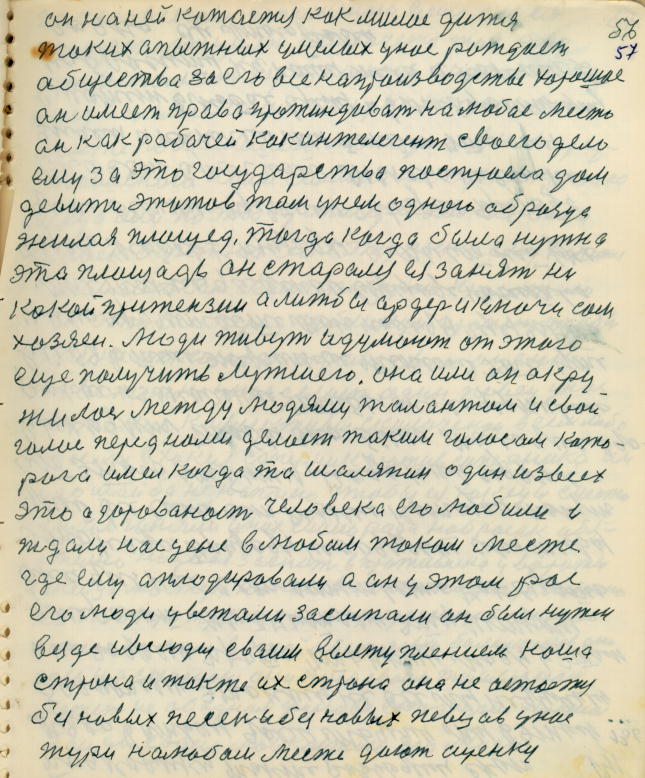 он на ней катается как милое дитя
56
57
таких опытных умелых у нас рождает
общества за его все на производстве хорошие
он имеет права притиндоват на любое место
он как рабочей как интелегент своего дела
ему за это государства построела дом
девяти этотов там у нем одного образца
жилая площед. тогда когда была нужна
эта площадь он старался ея занят ни
какой притензии а лит бы ордер и ключи сам
хозяен. люди живут и думают от этого
еще получить лутшего. она или он окру
жилас между людями талантом и свой
голос перед нами делает таким голосам кото-
рога имел когда та шаляпин один из всех
это адорованост человека его любили и
ждали на сцене в любом таком месте
где ему аплодировали а он у этом рос
его люди цветами засыпали он был нужен
везде и всюды сваим выступлением наша
страна и также их страна она не астоет
без новых песен и без новых певцов у нас
жури на любом месте дают оценку